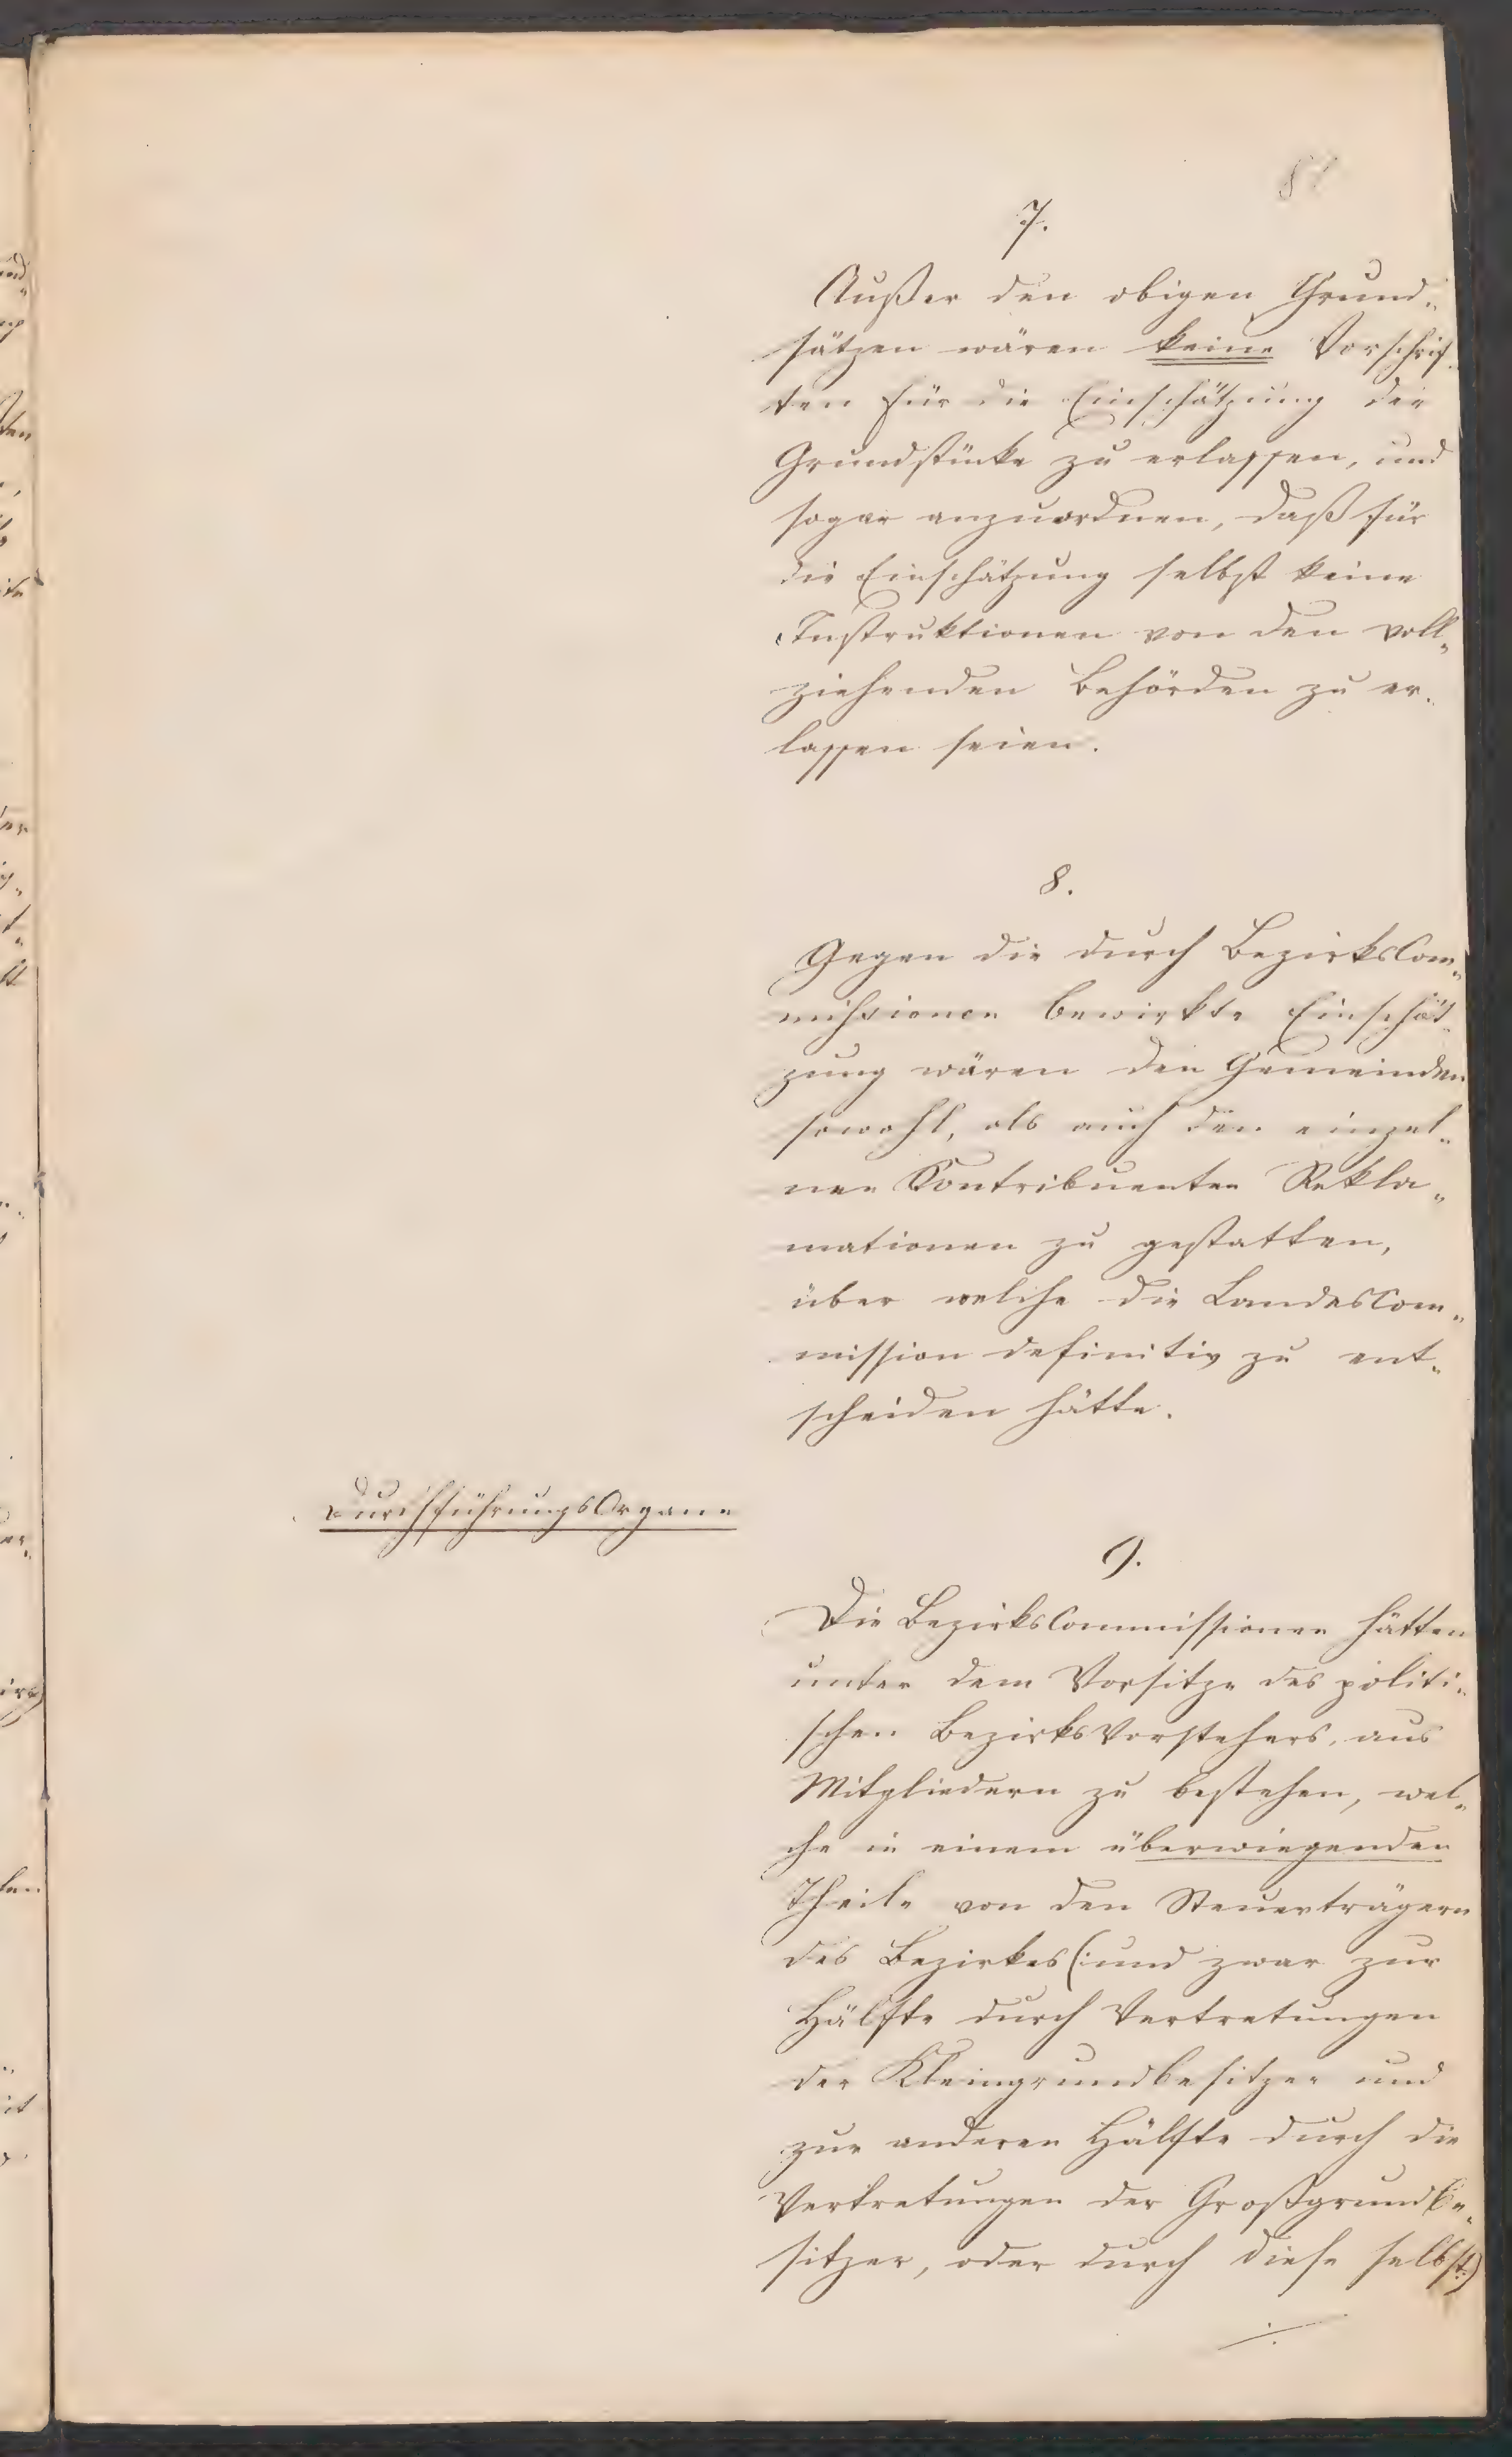 7.
Außer den obigen Grund„
sätzen wären keine Vorschrif„
ten für die Einschätzung der
Grundstücke zu erlassen, und
sogar anzuordnen, daß für
die Einschätzung selbst keine
Instruktionen von den voll„
ziehenden Behörden zu er„
lassen seien.
8.
Gegen die durch BezirksCom„
missionen bewirkte Einschät„
zung wären den Gemeinden
sowohl, als auch den einzel„
nen Kontribuenten Rekla„
mationen zu gestatten,
über welche die LandesCom„
mission definitiv zu ent„
scheiden hätte.
DurchführungsOrgane
9.
Die BezirksCommissionen hätten
unter dem Vorsitze des politi„
schen BezirksVorstehers, aus
Mitgliedern zu bestehen, wel„
che in einem überwiegenden
Theile von den Steuerträgern
des Bezirkes (: und zwar zur
Hälfte durch Vertretungen
der Kleingrundbesitzer und
zur anderen Hälfte durch die
Vertretungen der Großgrundbe„
sitzer, oder durch diese selbst :)